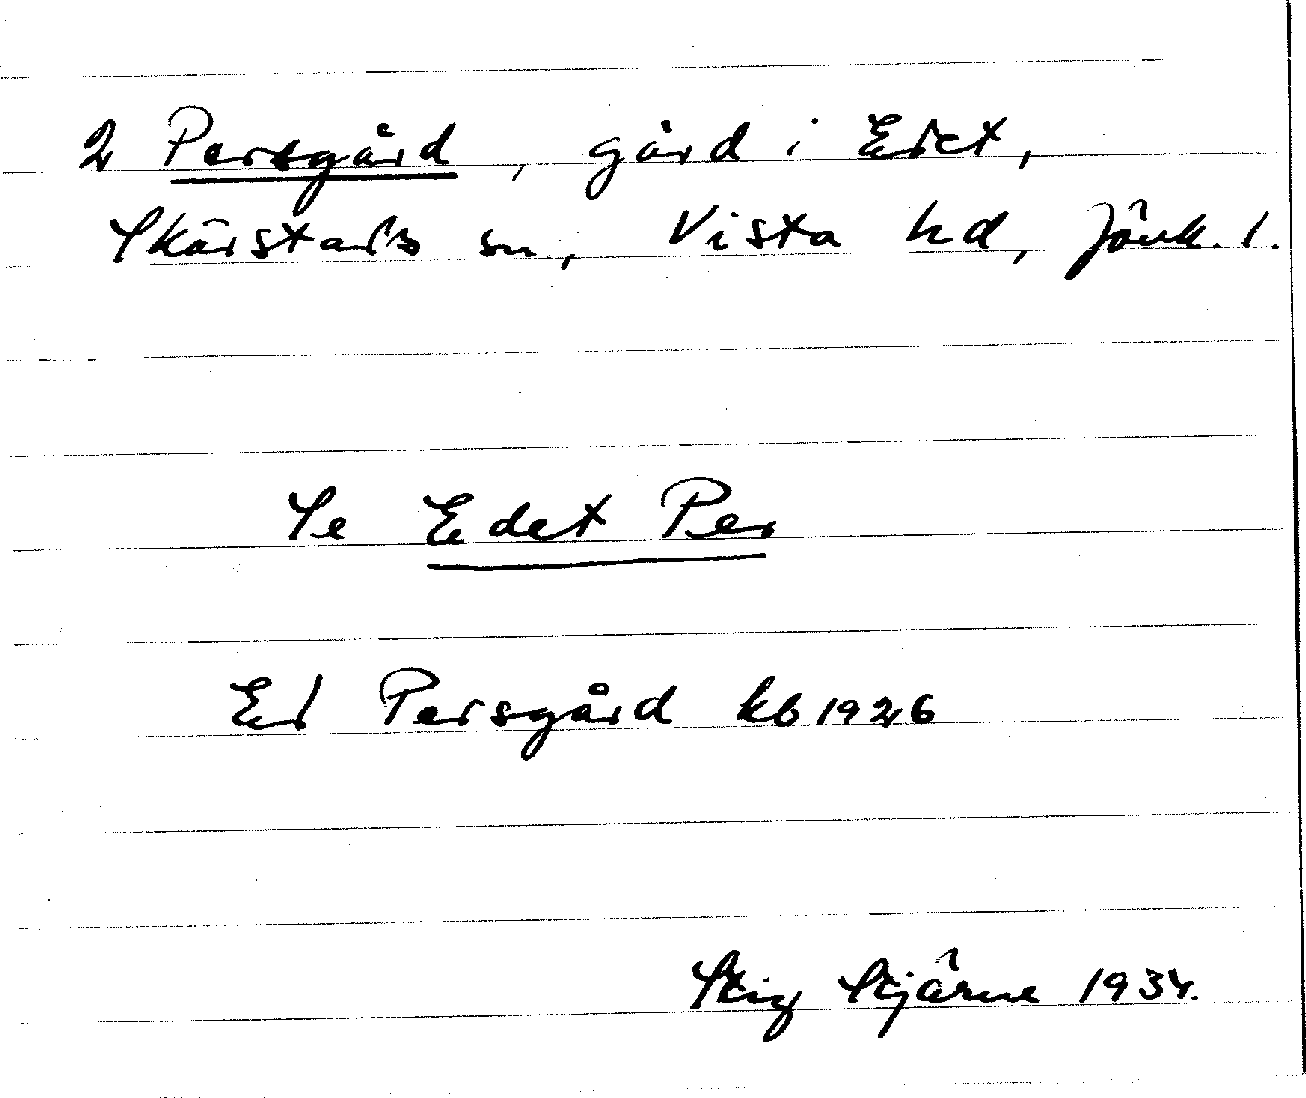 2 Persgård, gård i Edet,
Skärstads sn, Vista hd, Jönk. l.
Se Edet Per
Ed Persgård kb 1926
Stig Stjärne 1934.